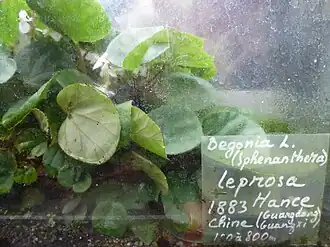 Begonia L.
(Sphenanthera)
leprosa
1883 Hance
Chine (Guangdong
Guangxi)
150 à 800m